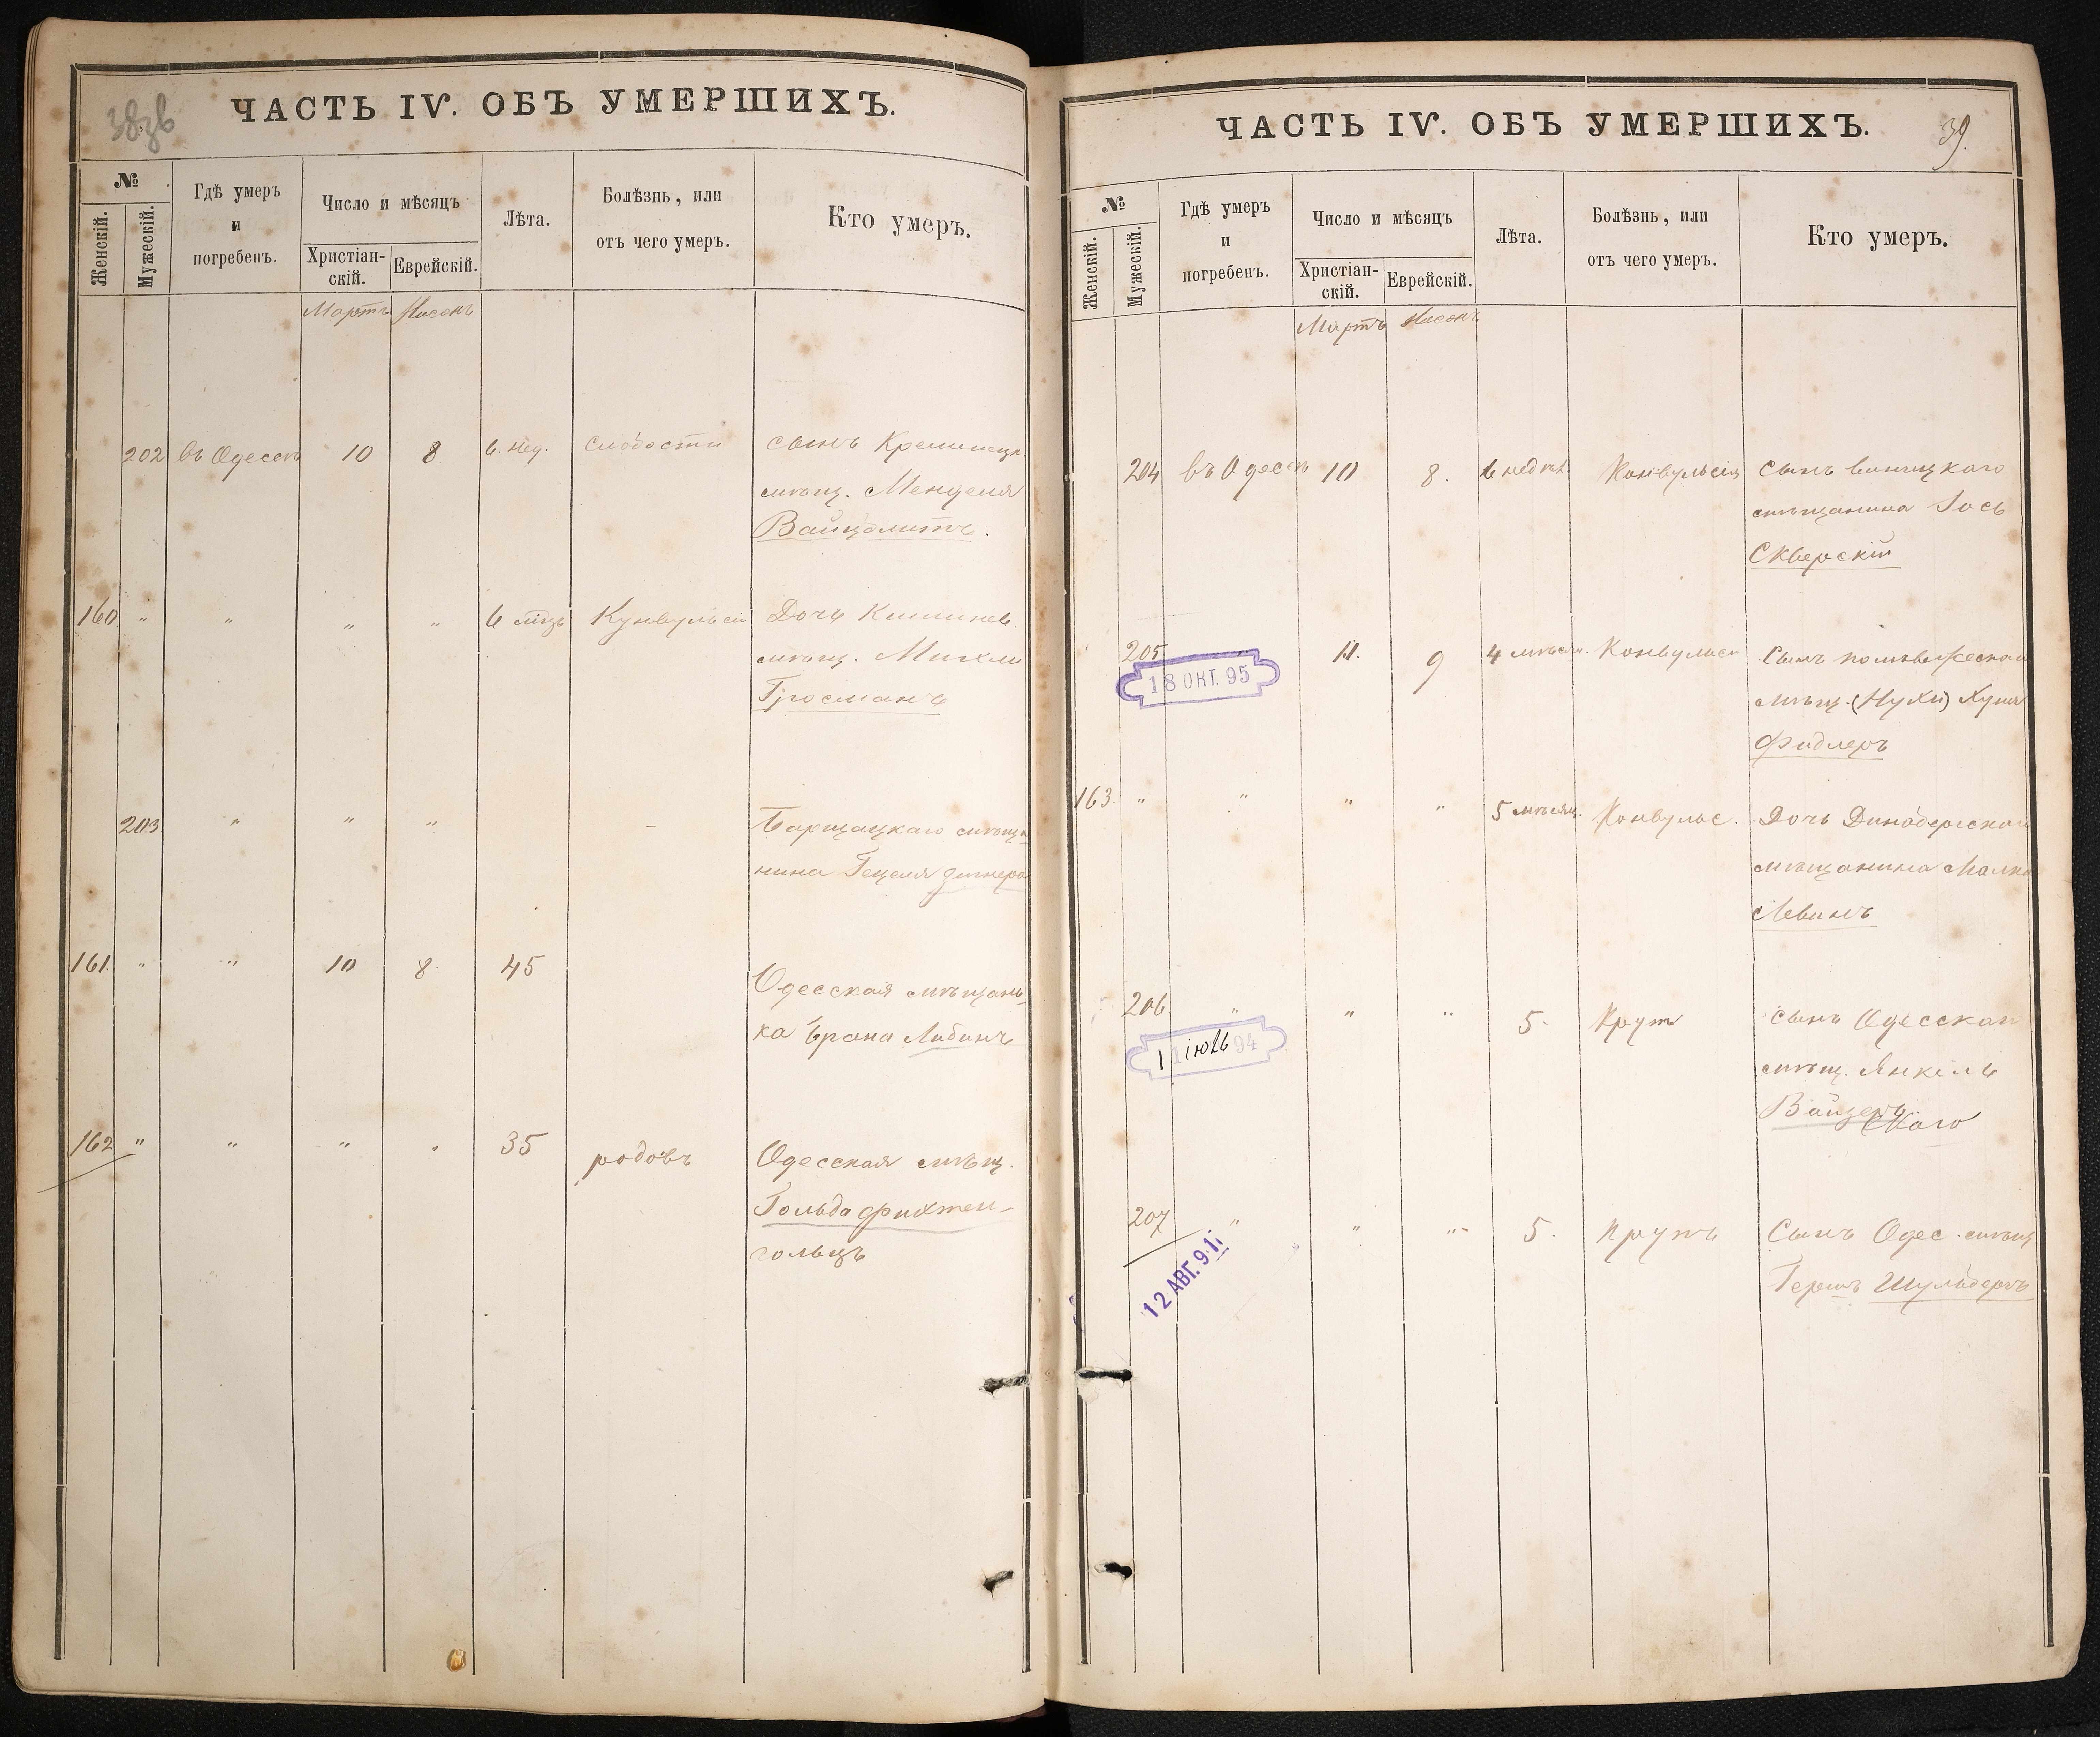 ЧАСТЬ IV. ОБЪ УМЕРШИХЪ.
№
Женскій.
Мужескій.
Гдѣ умеръ
и
погребенъ.
Число и мѣсяцъ
Христіан-
скій.
Еврейскій.
Лѣта.
Болѣзнь, или
отъ чего умеръ.
Кто умеръ.
Мартъ Нисонъ
202 въ Одессѣ 10 8 6. нед. слабости сынъ Кременецк.
мѣщ. Менделя
Вайцолитъ.
160 " " " " 6 мѣц Кунвульсіи Дочь Кишинев.
мѣщ. Михли
Гросманъ
203 " " " -
нина Гецеля
161. " " 10 8. 45 Одесская мѣщан-
ка Брана Либинъ
162 " " " " 35 родовъ Одесская мѣщ.
Гольда Фихтен-
гольцъ
ЧАСТЬ IV. ОБЪ УМЕРШИХЪ.
39.
№
Женскій.
Мужескій.
Гдѣ умеръ
и
погребенъ.
Число и мѣсяцъ
Христіан-
скій.
Еврейскій.
Лѣта.
Болѣзнь, или
отъ чего умеръ.
Кто умеръ.
Мартъ Нисонъ
204 въ Одессѣ 10 8. 6 недѣл. Конвульсія Сынъ Виницкаго
мѣщанина Іось
Скверскій
205 " 11. 9 4 мѣсяц. Конвульси Сынъ
мѣщ. (Нухи)
Фидлеръ
18 ОКТ. 95
163. " " " " 5 мѣсяц. Конвульс. Дочь Динабергскаго
мѣщанина Малка
Левинъ
206 " " " 5. Крупъ сынъ Одесскаго
мѣщ. Янкель
Вайцен
скаго
1 іюль 94
207 " " " 5. Крупъ Сынъ Одес. мѣщ
Гершъ Шульберъ
12 АВГ. 91